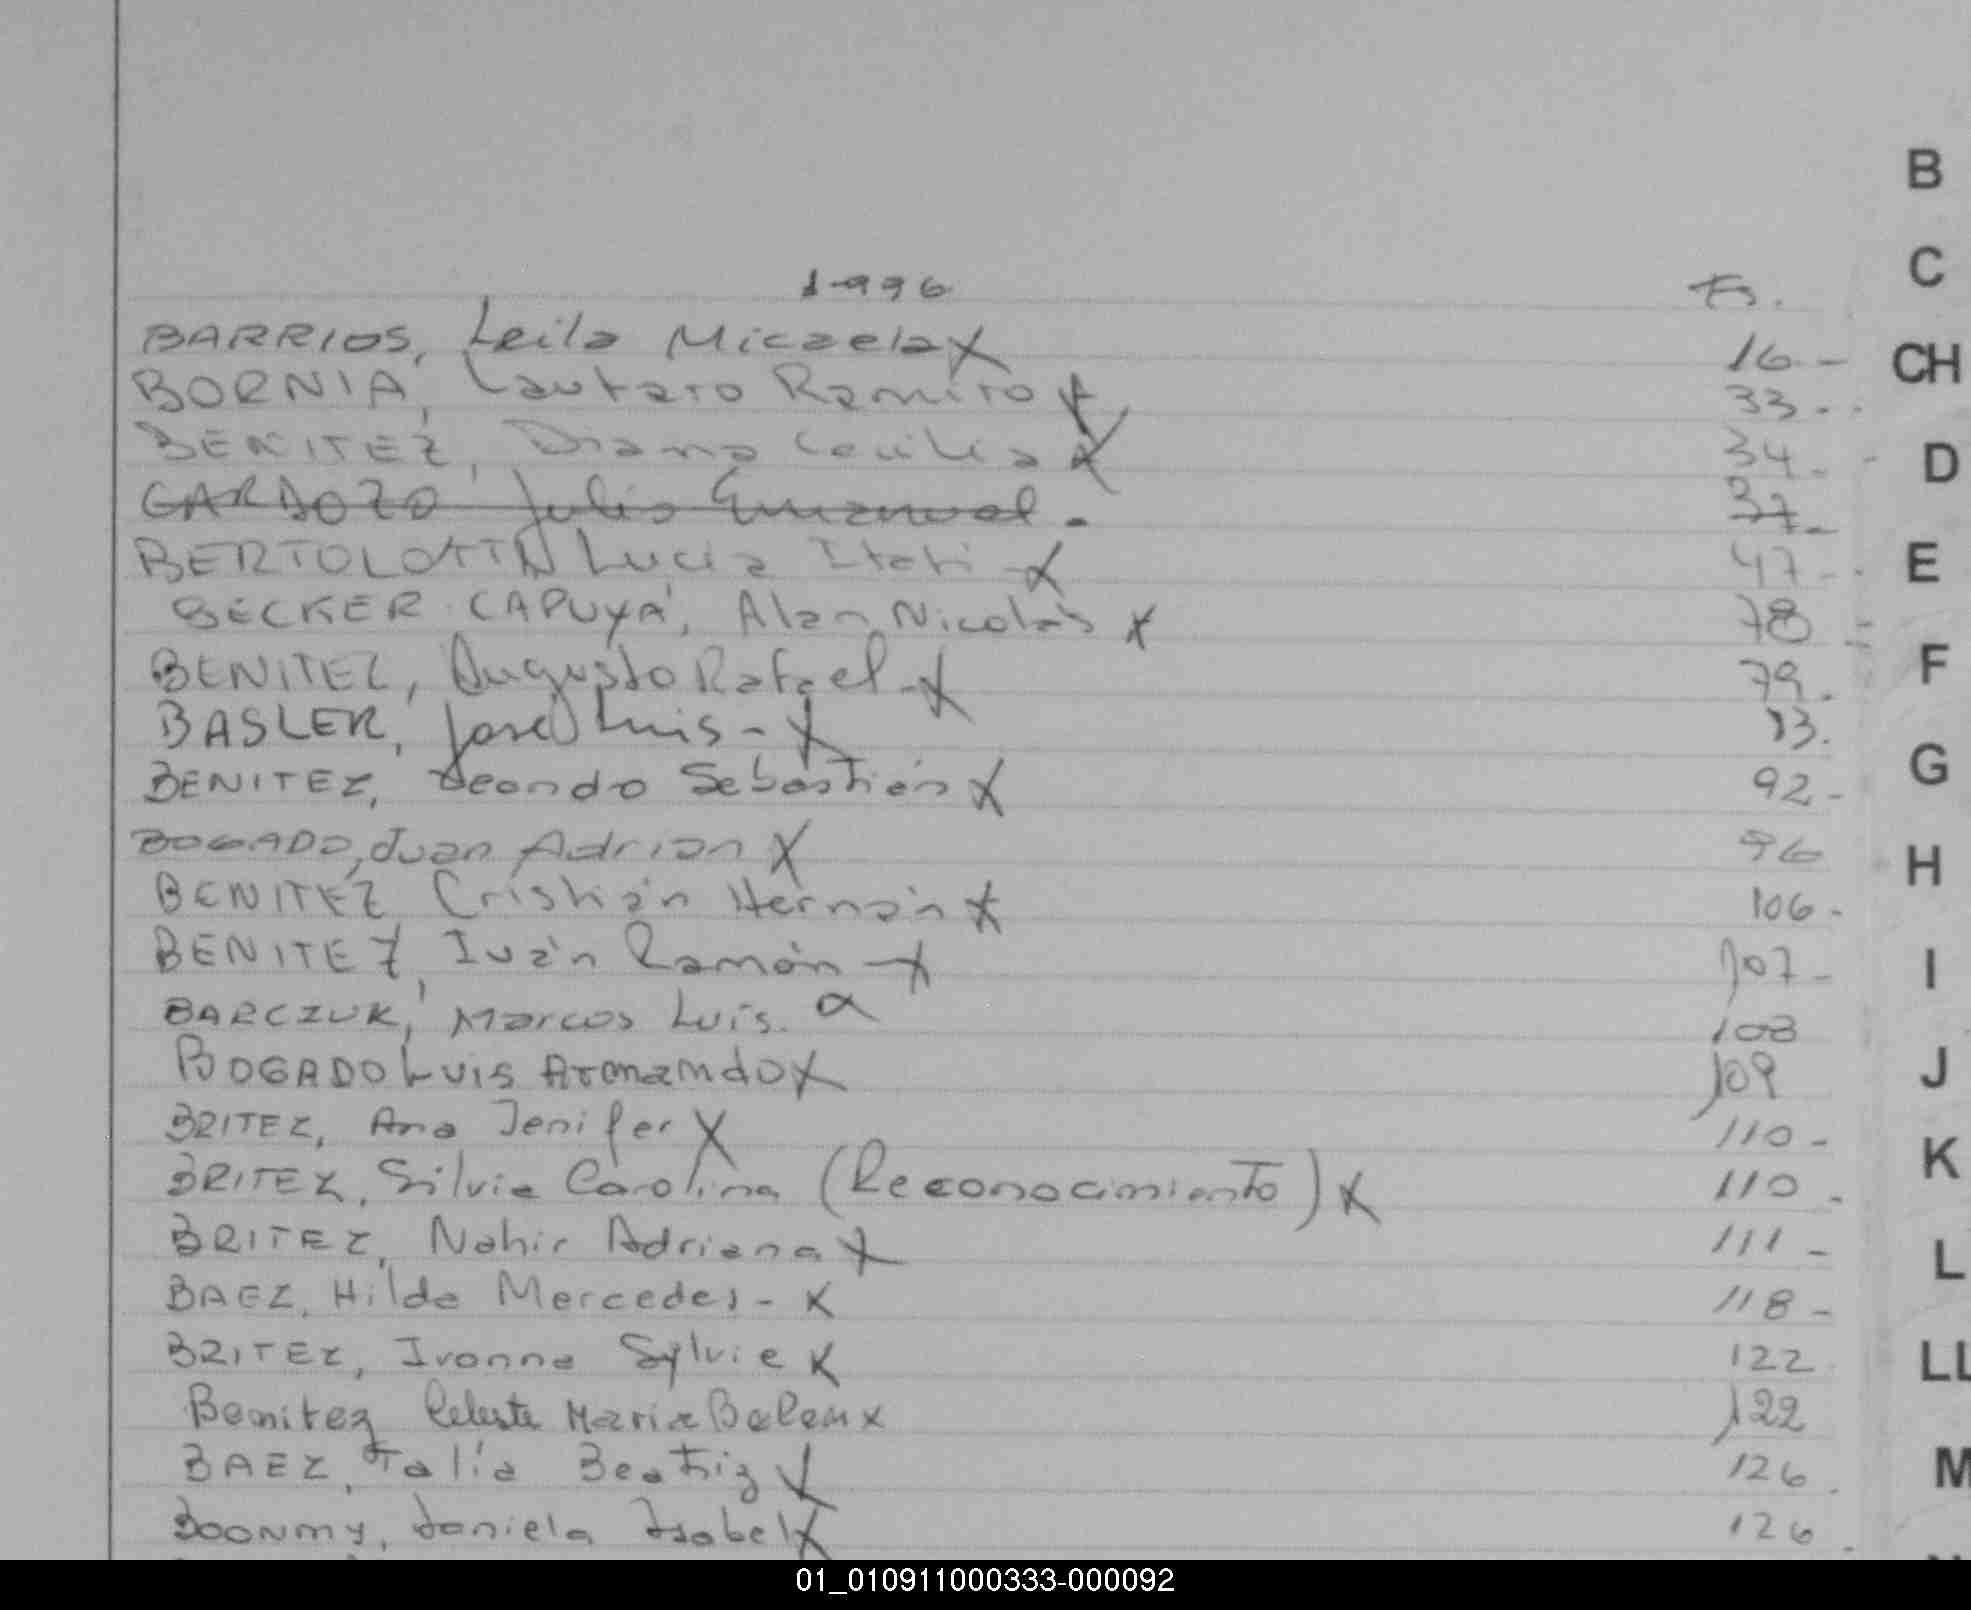 1996 Fs.
BARRIOS, Leila Micaela X 16 -
BORNIA, Lautaro Ramiro X 33 -
BENITEZ, Diana Cecilia X 34 -
CARDOZO Julio Emanuel - 37 -
BERTOLOTTI, Lucia Itati - X 47 -
BECKER CAPUYA, Alan Nicolás X 78
BENITEZ, Augusto Rafael - X 79 .
BASLER, José Luis - X 83.
BENITEZ, Leando Sebastián X 92 -
BOGADO, Juan Adrian X 96
BENITEZ Cristián Hernán X 106 -
BENITEZ, Iván Ramón - X 107 -
BARCZUK, Marcos Luis. X 108
BOGADO Luis Armando X 109
BRITEZ, Ana Jenifer X 110 -
BRITEZ, Silvia Carolina (Reconocimiento) X 110 -
BRITEZ, Nahir Adriana X 111 -
BAEZ, Hilda Mercedes - X 118 -
BRITEZ, Ivonne Sylvie X 122
Benitez Celeste Maria Belen x 122
BAEZ, Talía Beatriz X 126 .
BOONMY, Daniela Isabel X 126 .
B
C
CH
D
E
F
G
H
I
J
K
L
LL
M
01_010911000333-000092